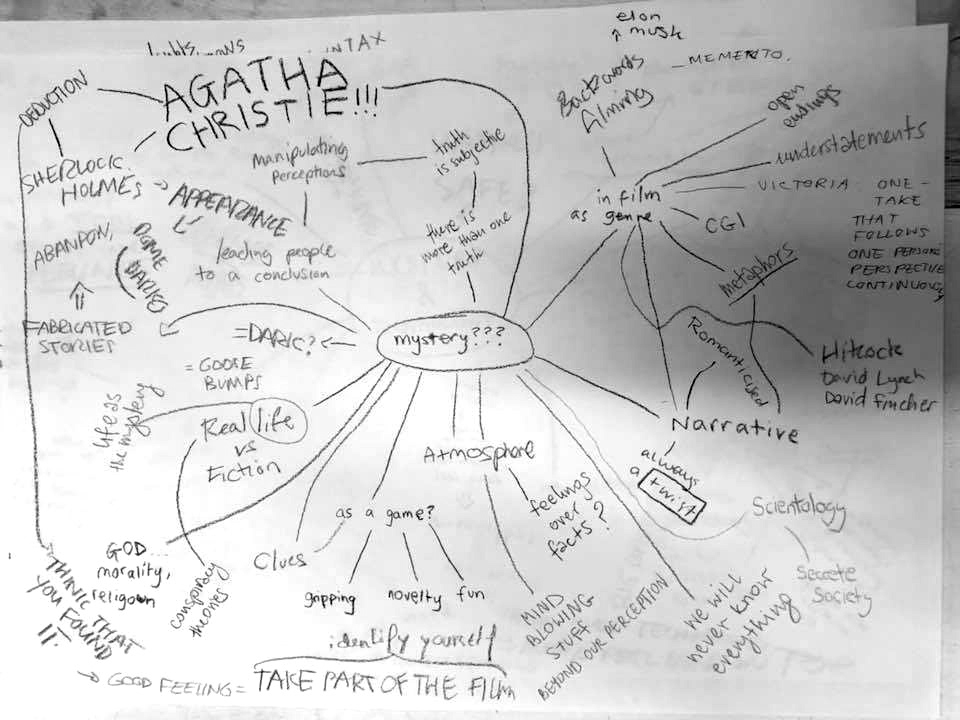 elon
musk
AGATHA
CHRISTIE!!!
Backwards
filming
MEMENTO.
DEDUCTION
open
endings
SHERLOCK
HOLMES
manipulating
perceptions
truth
is subjective
understatements
APPEARANCE
in film
as genre
VICTORIA: ONE-
TAKE
THAT
FOLLOWS
ONE PERSONS
PERSPECTIVE
CONTINUOUSLY
CGI
ABANDON,
leading people
to a conclusion
there is
more than one
truth
metaphors
FABRICATED
STORIES
=DARK?
mystery???
Romanticised
= GOOSE
BUMPS
Hitcock
David Lynch
David Fincher
life as
the mystery
Real life
vs
Fiction
Narrative
Atmosphere
always
a
twist
feelings
over
facts?
Scientology
as a game?
Clues
GOD...
morality,
religoun
conspiracy
theories
gripping
novelty
fun
Secrete
Society
THINK THAT
YOU FOUND
IT.
MIND
BLOWING
STUFF
BEYOND OUR PERCEPTION
WE WILL
never know
everything
identify yourself
GOOD FEELING = TAKE PART OF THE FILM